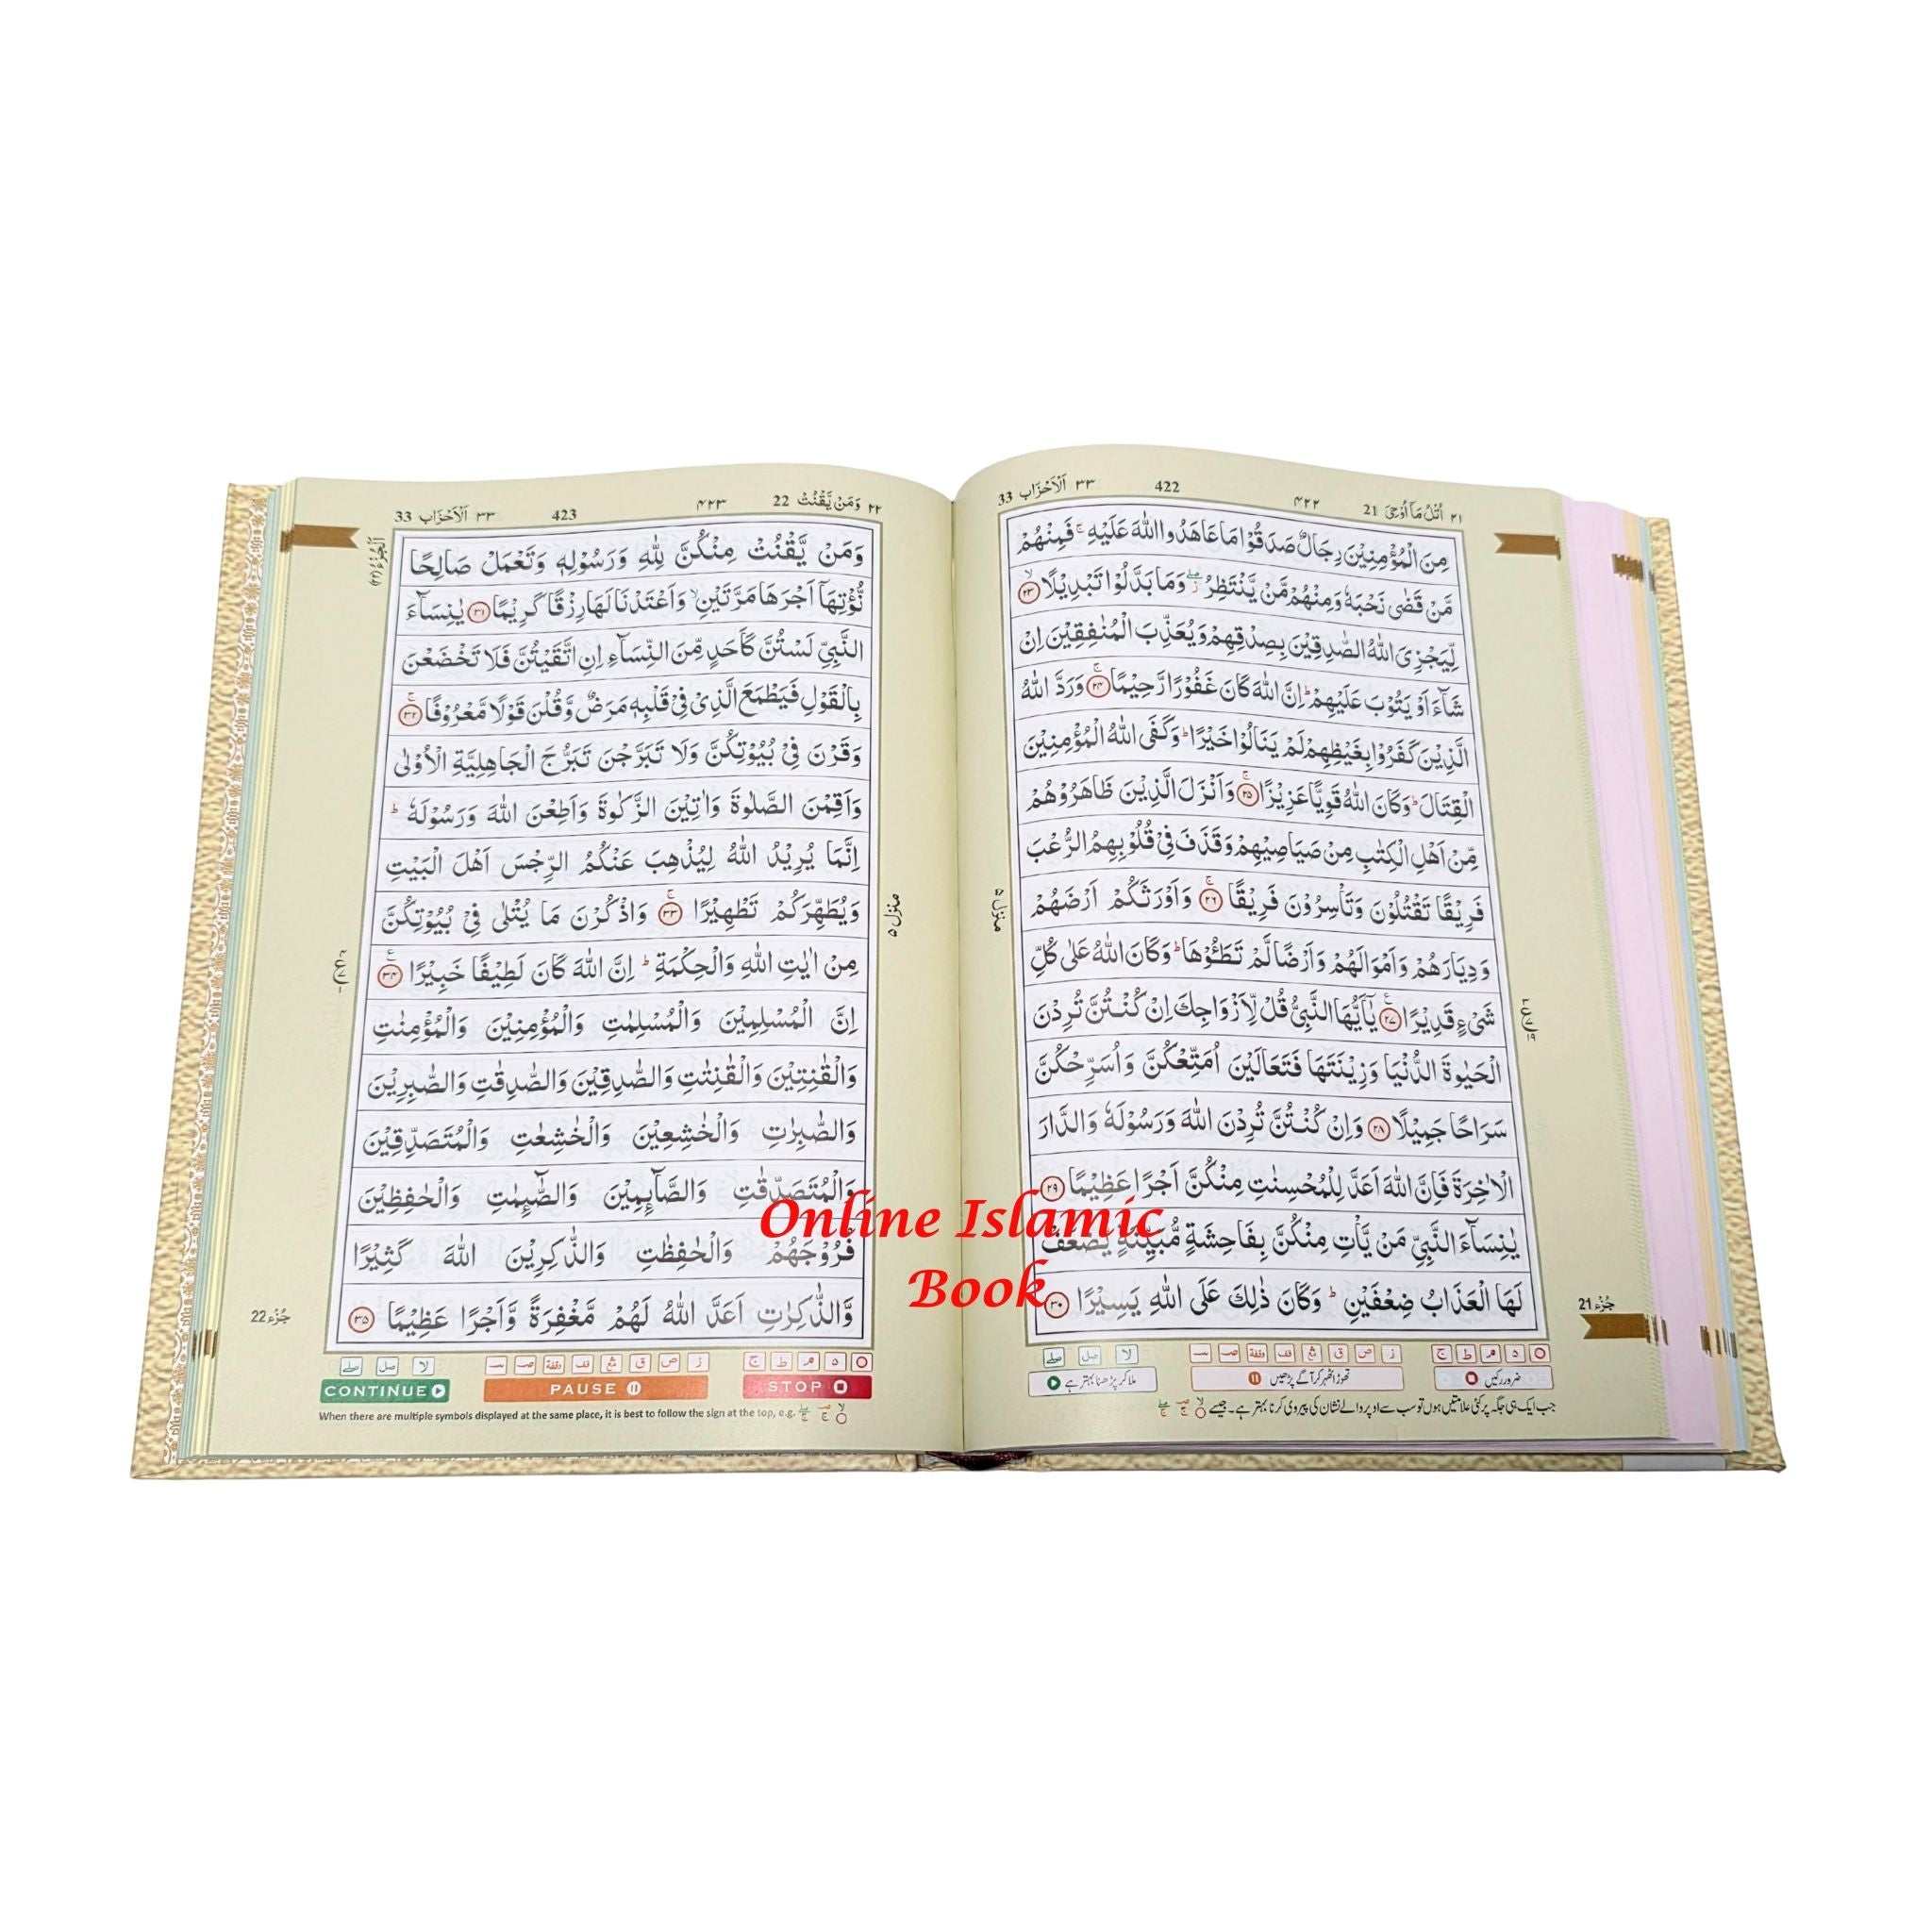 ٢١ اُتْلُ مَآ اُوْحِیَ 21 ٤٢٢ 422 ٣٣ اَلْاَحْزَاب 33
مِنَ الْمُؤْمِنِيْنَ رِجَالٌ صَدَقُوْا مَا عَاهَدُوا اللّٰهَ عَلَيْهِ ۚ فَمِنْهُمْ
مَّنْ قَضٰى نَحْبَهٗ وَمِنْهُمْ مَّنْ يَّنْتَظِرُ ۖ وَمَا بَدَّلُوْا تَبْدِيْلًا ٢٣
لِّيَجْزِىَ اللّٰهُ الصّٰدِقِيْنَ بِصِدْقِهِمْ وَيُعَذِّبَ الْمُنٰفِقِيْنَ اِنْ
شَآءَ اَوْ يَتُوْبَ عَلَيْهِمْ ؕ اِنَّ اللّٰهَ كَانَ غَفُوْرًا رَّحِيْمًا ٢٤ وَرَدَّ اللّٰهُ
الَّذِيْنَ كَفَرُوْا بِغَيْظِهِمْ لَمْ يَنَالُوْا خَيْرًا ؕ وَكَفَى اللّٰهُ الْمُؤْمِنِيْنَ
الْقِتَالَ ؕ وَكَانَ اللّٰهُ قَوِيًّا عَزِيْزًا ٢٥ وَاَنْزَلَ الَّذِيْنَ ظَاهَرُوْهُمْ
مِّنْ اَهْلِ الْكِتٰبِ مِنْ صَيَاصِيْهِمْ وَقَذَفَ فِىْ قُلُوْبِهِمُ الرُّعْبَ
فَرِيْقًا تَقْتُلُوْنَ وَتَاْسِرُوْنَ فَرِيْقًا ٢٦ وَاَوْرَثَكُمْ اَرْضَهُمْ
وَدِيَارَهُمْ وَاَمْوَالَهُمْ وَاَرْضًا لَّمْ تَطَئُوْهَا ؕ وَكَانَ اللّٰهُ عَلٰى كُلِّ
شَىْءٍ قَدِيْرًا ٢٧ يٰۤاَيُّهَا النَّبِىُّ قُلْ لِّاَزْوَاجِكَ اِنْ كُنْتُنَّ تُرِدْنَ
الْحَيٰوةَ الدُّنْيَا وَزِيْنَتَهَا فَتَعَالَيْنَ اُمَتِّعْكُنَّ وَاُسَرِّحْكُنَّ
سَرَاحًا جَمِيْلًا ٢٨ وَاِنْ كُنْتُنَّ تُرِدْنَ اللّٰهَ وَرَسُوْلَهٗ وَالدَّارَ
الْاٰخِرَةَ فَاِنَّ اللّٰهَ اَعَدَّ لِلْمُحْسِنٰتِ مِنْكُنَّ اَجْرًا عَظِيْمًا ٢٩
يٰنِسَآءَ النَّبِىِّ مَنْ يَّاْتِ مِنْكُنَّ بِفَاحِشَةٍ مُّبَيِّنَةٍ يُّضٰعَفْ
لَهَا الْعَذَابُ ضِعْفَيْنِ ؕ وَكَانَ ذٰلِكَ عَلَى اللّٰهِ يَسِيْرًا ٣٠
منزل ۵
جُزْء 21
ضرور رکیں
تھوڑا ٹھہر کر آگے پڑھیں
ملا کر پڑھنا بہتر ہے
جب ایک ہی جگہ پر کئی علامتیں ہوں تو سب سے اوپر والے نشان کی پیروی کرنا بہتر ہے۔ جیسے
٢٢ وَمَنْ يَّقْنُتْ 22 ٤٢٣ 423 ٣٣ اَلْاَحْزَاب 33
وَمَنْ يَّقْنُتْ مِنْكُنَّ لِلّٰهِ وَرَسُوْلِهٖ وَتَعْمَلْ صَالِحًا
نُّؤْتِهَاۤ اَجْرَهَا مَرَّتَيْنِ ۙ وَاَعْتَدْنَا لَهَا رِزْقًا كَرِيْمًا ٣١ يٰنِسَآءَ
النَّبِىِّ لَسْتُنَّ كَاَحَدٍ مِّنَ النِّسَآءِ اِنِ اتَّقَيْتُنَّ فَلَا تَخْضَعْنَ
بِالْقَوْلِ فَيَطْمَعَ الَّذِىْ فِىْ قَلْبِهٖ مَرَضٌ وَّقُلْنَ قَوْلًا مَّعْرُوْفًا ٣٢
وَقَرْنَ فِىْ بُيُوْتِكُنَّ وَلَا تَبَرَّجْنَ تَبَرُّجَ الْجَاهِلِيَّةِ الْاُوْلٰى
وَاَقِمْنَ الصَّلٰوةَ وَاٰتِيْنَ الزَّكٰوةَ وَاَطِعْنَ اللّٰهَ وَرَسُوْلَهٗ ؕ
اِنَّمَا يُرِيْدُ اللّٰهُ لِيُذْهِبَ عَنْكُمُ الرِّجْسَ اَهْلَ الْبَيْتِ
وَيُطَهِّرَكُمْ تَطْهِيْرًا ٣٣ وَاذْكُرْنَ مَا يُتْلٰى فِىْ بُيُوْتِكُنَّ
مِنْ اٰيٰتِ اللّٰهِ وَالْحِكْمَةِ ؕ اِنَّ اللّٰهَ كَانَ لَطِيْفًا خَبِيْرًا ٣٤
اِنَّ الْمُسْلِمِيْنَ وَالْمُسْلِمٰتِ وَالْمُؤْمِنِيْنَ وَالْمُؤْمِنٰتِ
وَالْقٰنِتِيْنَ وَالْقٰنِتٰتِ وَالصّٰدِقِيْنَ وَالصّٰدِقٰتِ وَالصّٰبِرِيْنَ
وَالصّٰبِرٰتِ وَالْخٰشِعِيْنَ وَالْخٰشِعٰتِ وَالْمُتَصَدِّقِيْنَ
وَالْمُتَصَدِّقٰتِ وَالصَّآئِمِيْنَ وَالصّٰٓئِمٰتِ وَالْحٰفِظِيْنَ
فُرُوْجَهُمْ وَالْحٰفِظٰتِ وَالذّٰكِرِيْنَ اللّٰهَ كَثِيْرًا
وَّالذّٰكِرٰتِ اَعَدَّ اللّٰهُ لَهُمْ مَّغْفِرَةً وَّاَجْرًا عَظِيْمًا ٣٥
اَلْجُزْءُ (٢٢)
منزل ۵
جُزْء 22
STOP
PAUSE
CONTINUE
When there are multiple symbols displayed at the same place, it is best to follow the sign at the top, e.g.
Online Islamic
Book